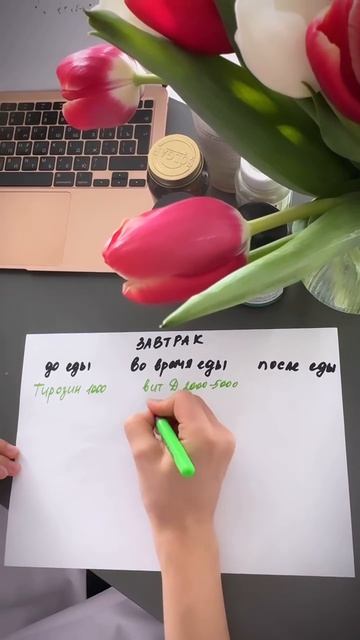 SOLGAR
ЗАВТРАК
до еды во время еды после еды
Тирозин 1000 вит Д 2000-5000